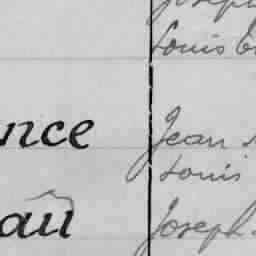 Louis
nce Jean
Louis
au Joseph